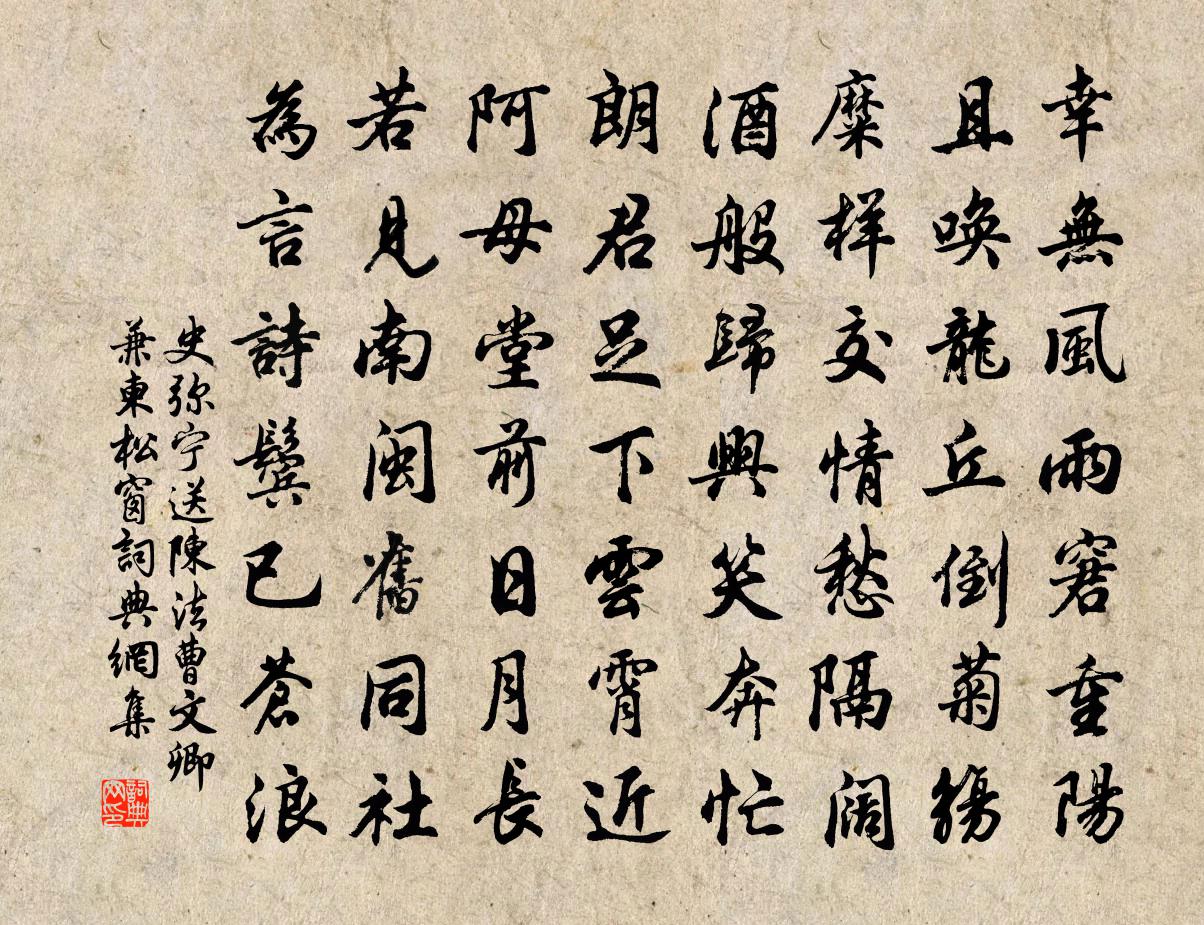 幸無風雨窘重陽
且喚龍丘倒菊觴
糜样交情愁隔闊
酒般歸興笑奔忙
朗君足下雲霄近
阿母堂前日月長
若見南閩舊同社
為言詩鬢已蒼浪
史弥宁送陳法曹文卿
兼東松窗詞典網集
詞典网印